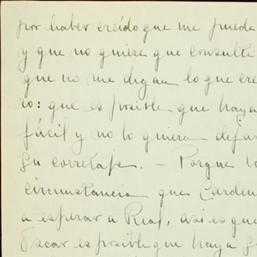 por haber creído que me puede
y que no quiere que consulte
que no me digan lo que cre
io: que es posible que haya
fácil y no lo quiera dejar
su corretaje. — Porque la
circunstancia que Carden
a esperar a Rios, así es que
Oscar es posible que haya